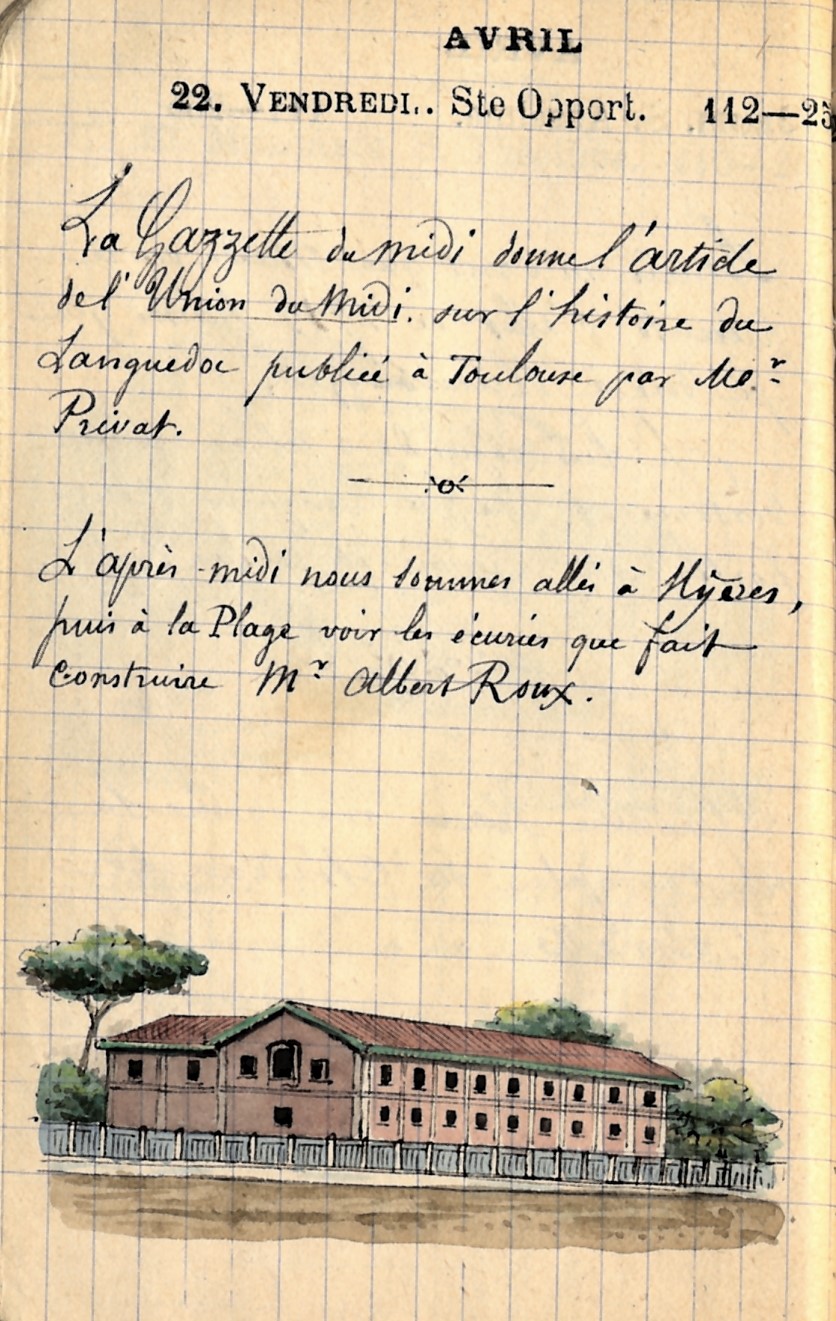 AVRIL
22. VENDREDI. Ste Opport. 112—25
La Gazzette du midi donne l'article
de l'Union du Midi. sur l'histoire du
Languedoc publiée à Toulouse par Mr
Privat.
L'après-midi nous sommes allés à Hyères,
puis à la Plage voir les écuries que fait
construire Mr Albert Roux.